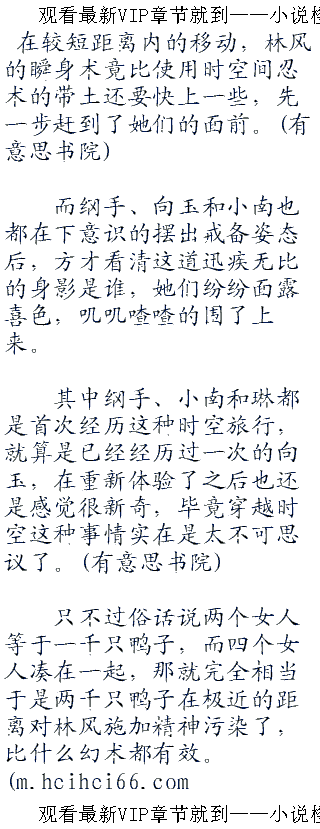 观看最新VIP章节就到——小说
在较短距离内的移动，林风
的瞬身术竟比使用时空间忍
术的带土还要快上一些，先
一步赶到了她们的面前。(有
意思书院)
而纲手、向玉和小南也
都在下意识的摆出戒备姿态
后，方才看清这道迅疾无比
的身影是谁，她们纷纷面露
喜色，叽叽喳喳的围了上
来。
其中纲手、小南和琳都
是首次经历这种时空旅行，
就算是已经经历过一次的向
玉，在重新体验了之后也还
是感觉很新奇，毕竟穿越时
空这种事情实在是太不可思
议了。(有意思书院)
只不过俗话说两个女人
等于一千只鸭子，而四个女
人凑在一起，那就完全相当
于是两千只鸭子在极近的距
离对林风施加精神污染了，
比什么幻术都有效。
(m.hcihci66.com
观看最新VIP章节就到——小说